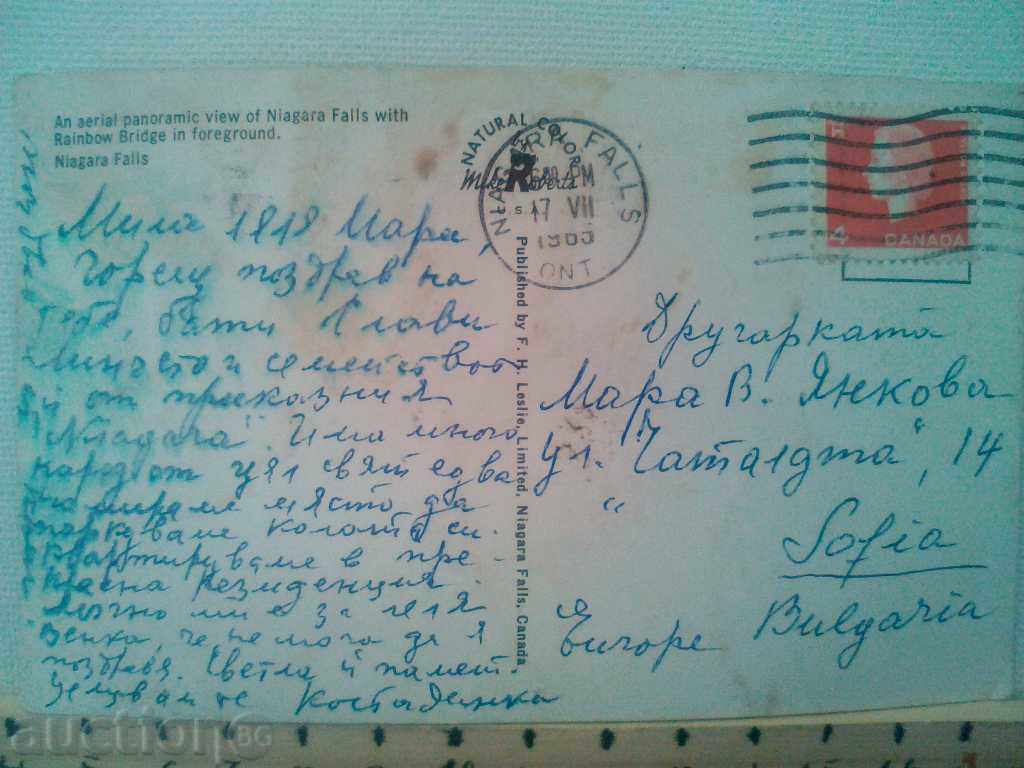 An aerial panoramic view of Niagara Falls with
Rainbow Bridge in foreground.
Niagara Falls
NATURAL COLOR
Mike Roberts
NIAGARA FALLS
PM
17 VII
ONT
4 CANADA
Published by F. H. Leslie, Limited, Niagara Falls, Canada
Мила Мара,
Горещ поздрав на
тебе, бати Слави
и семейството
ѝ от приказния
"Niagara". Има много
народ от цял свят едва
намираме място да
паркуваме колата си.
Квартируваме в пре-
красна резиденция.
Мъчно ми е за леля
Венка, че не мога да я
поздравя. Светла ѝ памет.
Целувам те Костадинка
Другарката
Мара В. Янкова
ул. "Чаталджа", 14
Sofia
Bulgaria
Europe
auction6 BG